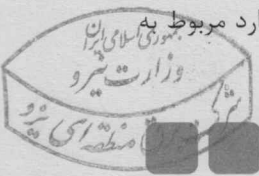 ارد مربوط به
جمهوری اسلامی ایران
وزارت نیرو
شرکت منطقه ای یزد